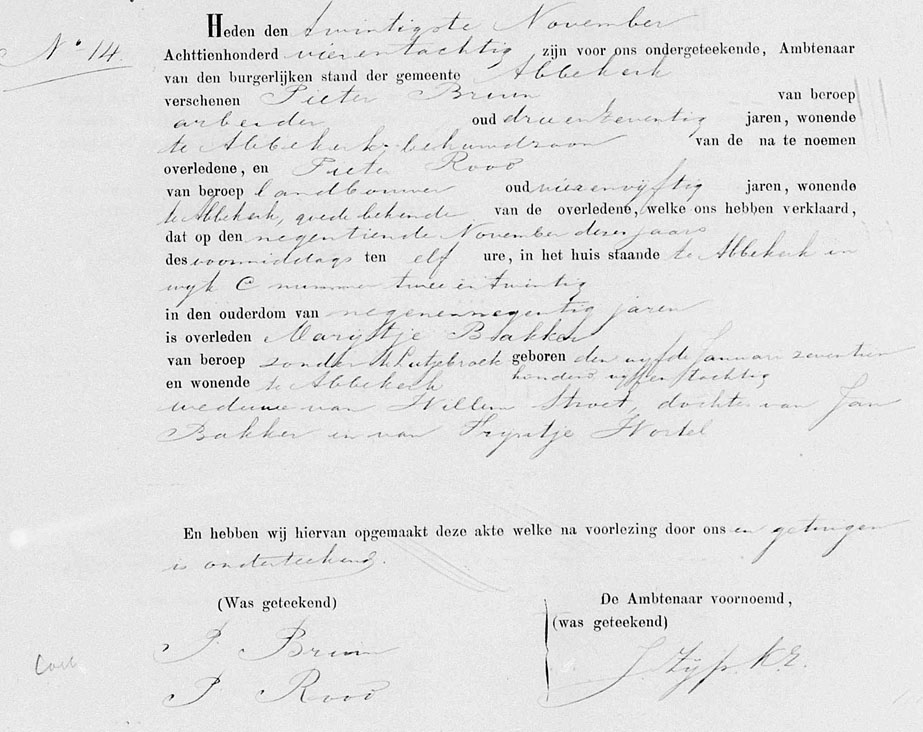 Heden den twintigste November
No 14. Achttienhonderd vierentachtig zijn voor ons ondergeteekende, Ambtenaar
van den burgerlijken stand der gemeente Abbekerk
verschenen Pieter Bruin van beroep
arbeider oud drieenzeventig jaren, wonende
te Abbekerk, behuwdzoon van de na te noemen
overledene, en Pieter Rood
van beroep landbouwer oud vierenvyftig jaren, wonende
te Abbekerk, goede bekende van de overledene, welke ons hebben verklaard,
dat op den negentiende November dezes jaars
des voormiddags ten elf ure, in het huis staande te Abbekerk in
wyk C nummer twee en twintig
in den ouderdom van negenennegentig jaren
is overleden Marytje Bakker
van beroep zonder te Lutjebroek geboren den vyfde Januari zeventien
en wonende te Abbekerk honderd vyfentachtig
weduwe van Willem Stroet, dochter van Jan
Bakker en van Tryntje Wortel
En hebben wij hiervan opgemaakt deze akte welke na voorlezing door ons en getuigen
is onderteekend.
(Was geteekend) De Ambtenaar voornoemd,
(was geteekend)
P. Bruin J Zyp. Kz.
P. Rood